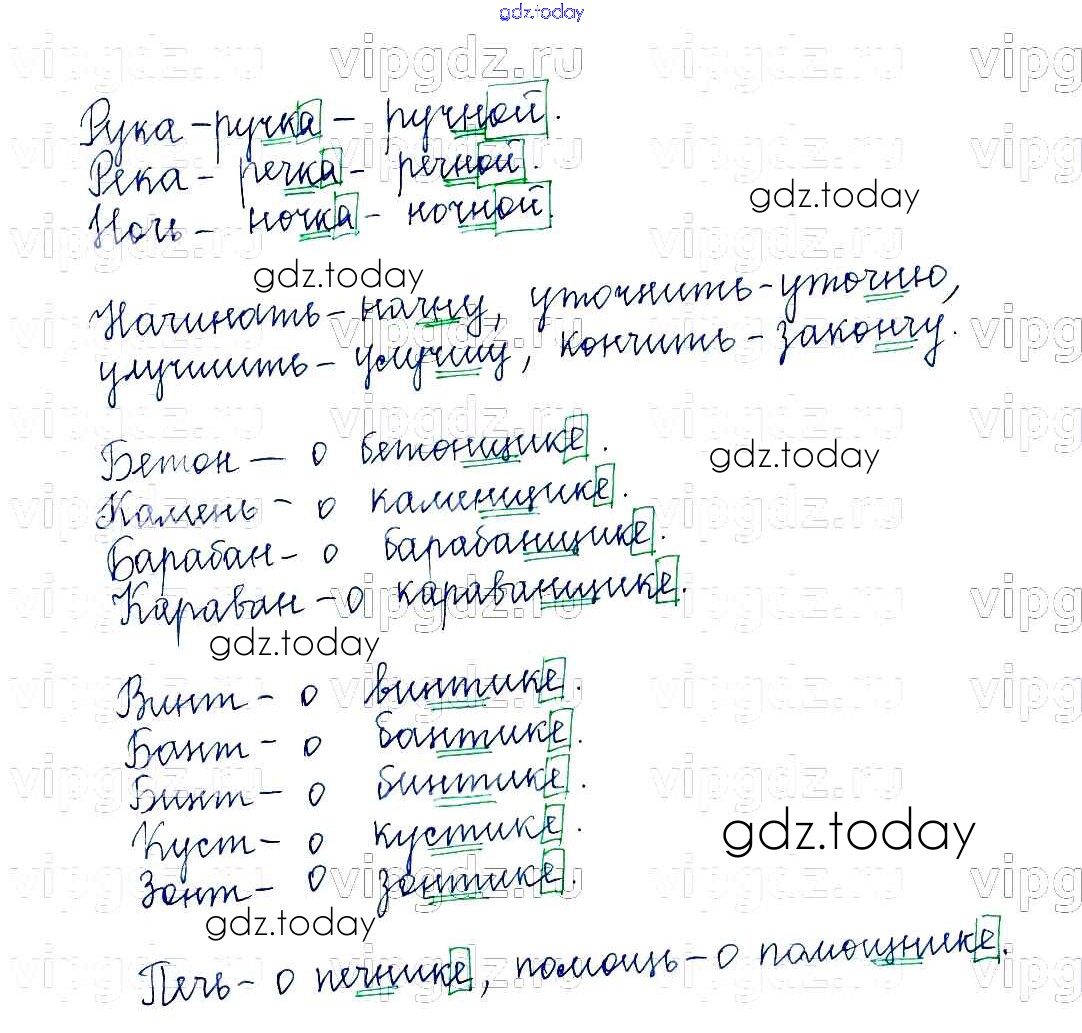 gdz.today
vipgdz.ru vipgdz.ru vipgdz.ru vipg
Рука - ручка - ручной.
Река - речка - речной.
Ночь - ночка - ночной.
gdz.today
gdz.today
Начинать - начну, уточнить - уточню,
улучшить - улучшу, кончить - закончу.
Бетон - о бетонщике.
gdz.today
Камень - о каменщике.
Барабан - о барабанщике.
Караван - о караванщике.
gdz.today
Винт - о винтике.
Бант - о бантике.
Бинт - о бинтике.
Куст - о кустике.
gdz.today
Зонт - о зонтике.
gdz.today
Печь - о печнике, помощь - о помощнике.